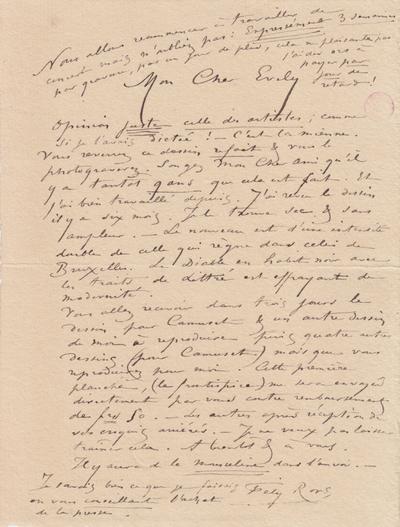 Nous allons recommencer à travailler de
concert mais n'oubliez pas : Expressément 3 semaines
par gravure, pas un jour de plus, cela ne plaisantez pas
j'aider
payer par
jour de
retard !
Mon Cher Evely
Opinion juste celle des artistes ; comme
si je l'avais dictée ! — C'est la mienne.
Vous reverrez ce dessin refait & vous le
photograverez. Songez mon cher ami qu'il
y a tantôt 9 ans que cela est fait. Et
j'ai bien travaillé depuis. J'ai revu le dessin
il y a six mois. Je le trouve sec & sans
ampleur. — Le nouveau est d'une intensité
double de celle qui règne dans celui de
Bruxelles. Le Diable en habit noir avec
les traits de Littré est effrayant de
modernité.
Vous allez recevoir dans trois jours le
dessin pour Camuset & un autre dessin
de moi à reproduire puis quatre autres
dessins (pour Camuset) mais que vous
reproduirez pour moi. Cette première
planche, (le frontispice) me sera envoyée
directement par vous contre remboursement
de frs 50. — Les autres après réception de
vos croquis arriérés. — Je ne veux pas laisser
traîner cela. A bientôt & à vous.
Il y aura de la mousseline dans l'envoi. —
Je savais bien ce que je faisais Fély Rops
en vous conseillant l'achat
de la presse.